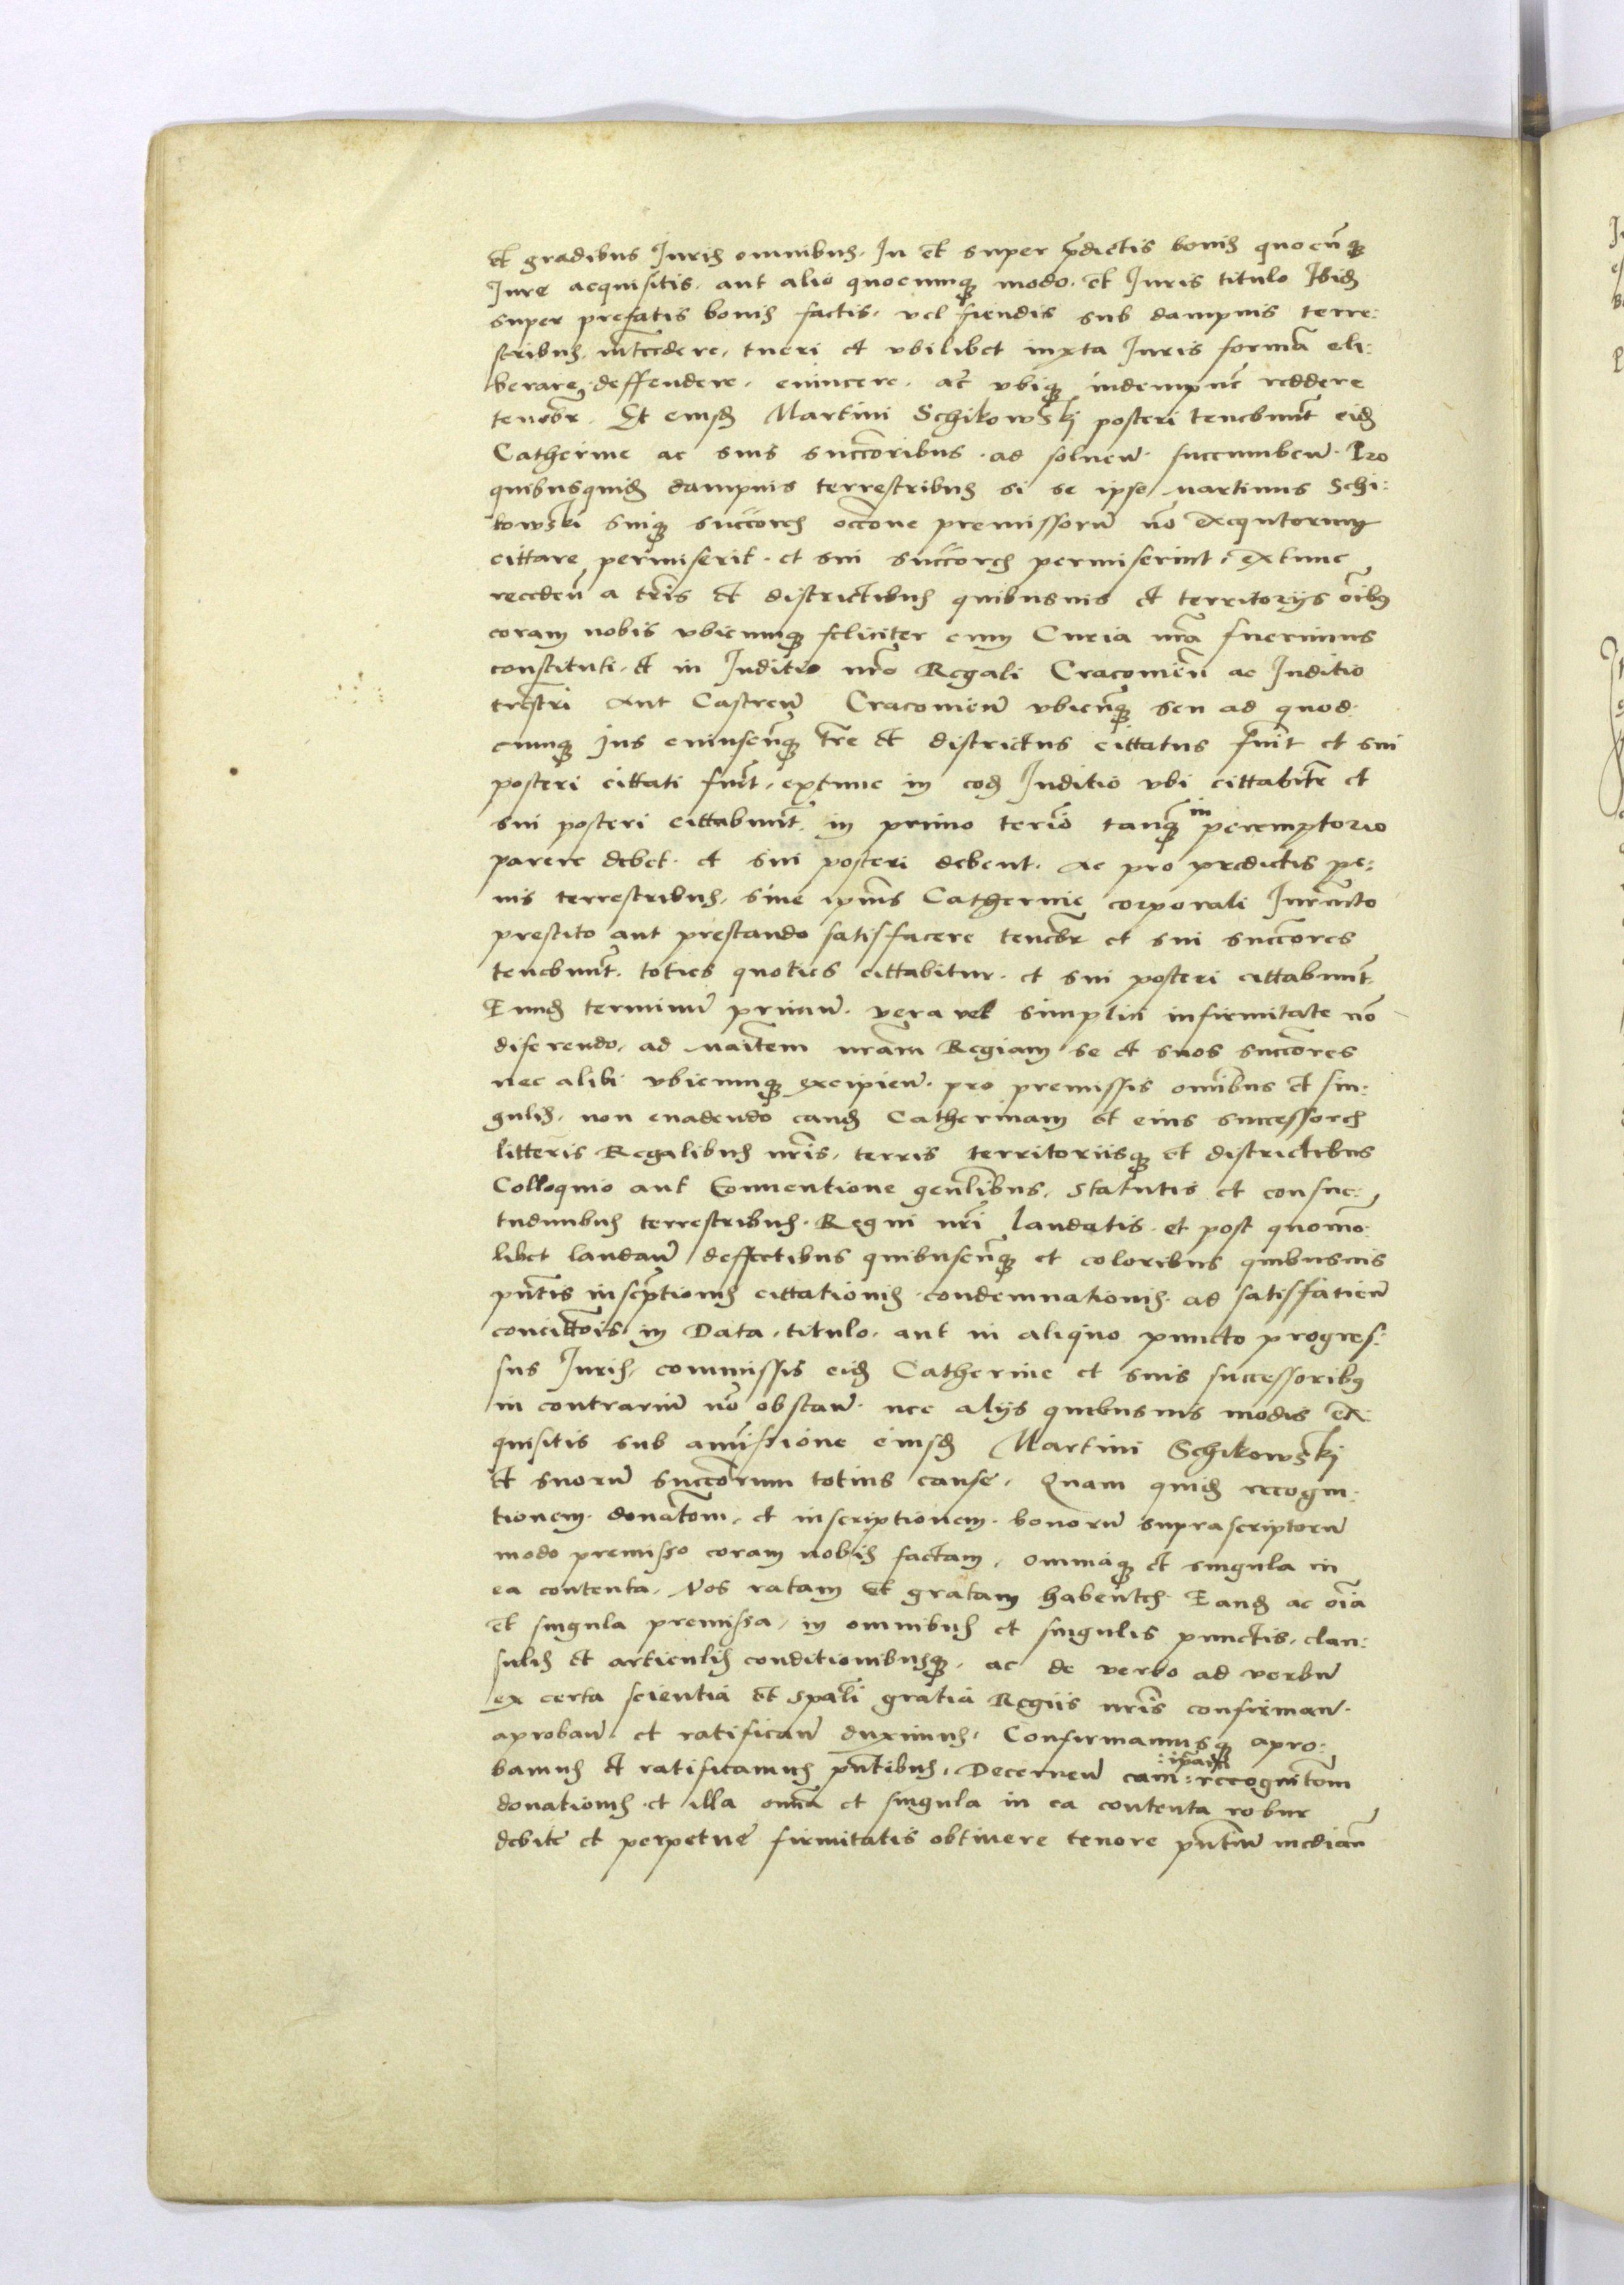 et gradibus Juris omnibus. In et super p̄dictis bonis quocūq̨
Jure acquisitis. aut alio quocumq̨ modo. et Juris titulo Ibid̄
super prefatis bonis factis. vel fiendis sub dampnis terre:
stribus. int̄cedere, tueri et vbilibet iuxta Juris formā eli:
berare, deffendere. euincere. ac̄ vbiq̨ indempnē reddere
teneb̄r. Et eiusd̄ Martini Schikowskj posteri tenebūnt eid̄
Catherine ac suis succ̄oribus. ad soluen̄. succumben̄. Pro
quibusquid̄ dampnis terrestribus si se ipse Martinus Schi:
kowski suiq̨ succ̄ores occ̄one premissorū nō exequutorum
cittare permiserit. et sui succ̄ores permiserint. extunc
receden̄ a tr̄is et districtibus quibusuis et territorijs oībus
coram nobis vbicumq̨ feliciter cum Curia nr̄a fuerimus
constituti. et in Juditio nr̄o Regali Cracouien̄ ac Juditio
trēstri Aut Castren̄ Cracouien̄ vbicūq̨ seu ad quod:
cumq̨ Jus cuiuscūq̨ tr̄e et districtus cittatus fu̅it et sui
posteri cittati fu̅it, extunc in eod̄ Juditio vbi cittabitr̄ et
sui posteri cittabunt̄. in primo ter̄io tanq̨ in peremptorio
parere debet. et sui posteri debent. Ac pro predictis pe:
nis terrestribus. siue ip̄ius Catherine corporali Jurām̄to
prestito aut prestando satisfacere teneb̄r et sui succ̄ores
tenebunt̄. toties quoties cittabitur. et sui posteri cittabunt̄.
Eund̄ terminū primū. vera vel simplici infirmitate nō
diferendo, ad Maiēstem nr̄am Regiam se et suos succ̄ores
nec alibi vbicumq̨ excipien̄. pro premissis om̄ibus et sin:
gulis. non euadendo eand̄ Catherinam et eius successores
litteris Regalibus nr̄is, terris territoriisq̨ et districtibus
Colloquio aut Conuentione gen̄libus, Statutis et consue:
tudinibus terrestribus. Regni nr̄i laudatis. et post quomō:
libet laudan̄ deffectibus quibuscūq̨ et coloribus quibusuis
pūtis insc̄ptionis cittationis. condemnationis. ad satisfatien̄
concitt̄ois in Data, titulo. aut in aliquo puncto progres:
sus Juris, commissis eid̄ Catherine et suis successoribus
in contrariū nō obstan̄. nec alijs quibusuis modis ex:
quisitis sub amissione eiusd̄ Martini Schikowskj
et suorū succ̄orum totius cause. Quam quid̄ recogni:
tionem. donat̄om, et inscriptionem. bonorū suprascriptorū
modo premisso coram nobis factam. omniaq̨ et singula in
ea contenta, Nos ratam et gratam habentes. Eand̄ ac oīa
et singula premissa, in omnibus et singulis punctis, clau:
sulis et articulis conditionibusq̨. ac de verbo ad verbū
ex certa scientia et sp̄ali gratia Regiis nr̄is confirman̄.
aproban̄ et ratifican̄ duximus. Confirmamusq̨ apro:
bamus et ratificamus pn̄tibus. Decernen̄ eam :ipam: recognit̄om
donationis et illa om̄ia et singula in ea contenta robur
debite et perpetue firmitatis obtinere tenore pn̄tiū median̄